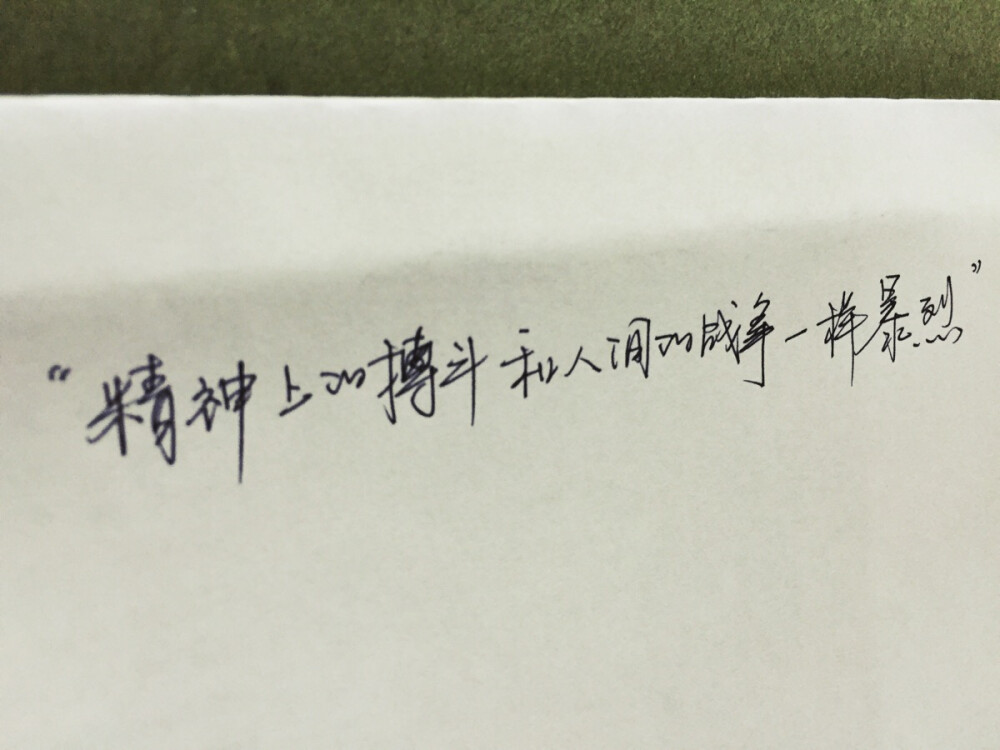 “精神上的搏斗和人间的战争一样暴烈”